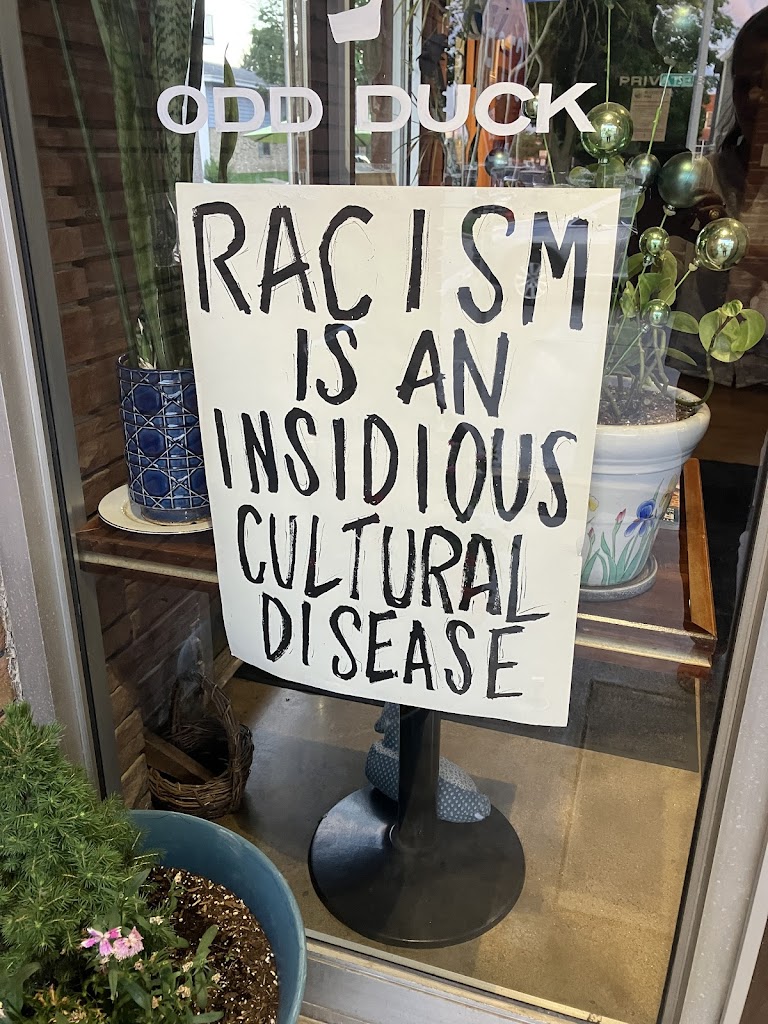 PRIVATE
ODD DUCK
RACISM
IS AN
INSIDIOUS
CULTURAL
DISEASE